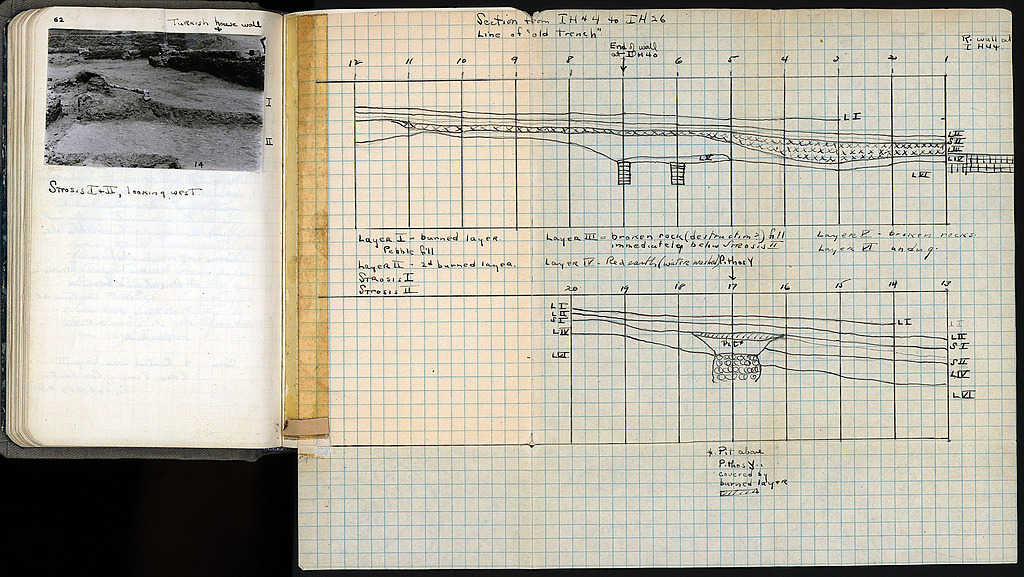 62
Turkish house wall
I
II
14
Strosis I + II, looking west
Section from IH44 to IH26
Line of "old trench"
End of wall
at IH40
R. wall at
IH44
12 11 10 9 8 6 5 4 3 2 1
L I
L II
S II
L III
L IV
L V
L VI
Layer I - burned layer
Pebble fill
Layer II - 2d burned layer.
Strosis I
Strosis II
Layer III = broken rock (destruction?) fill
immediately below Strosis II
Layer IV - Red earth (water washed)
Layer V - broken rocks
Layer VI undug.
Pithos Y
20 19 18 17 16 15 14 13
L I
L II
S I
L IV
L VI
Pit*
L I
L I
L II
S I
S II
L IV
L VI
* Pit above
Pithos Y..
covered by
burned layer